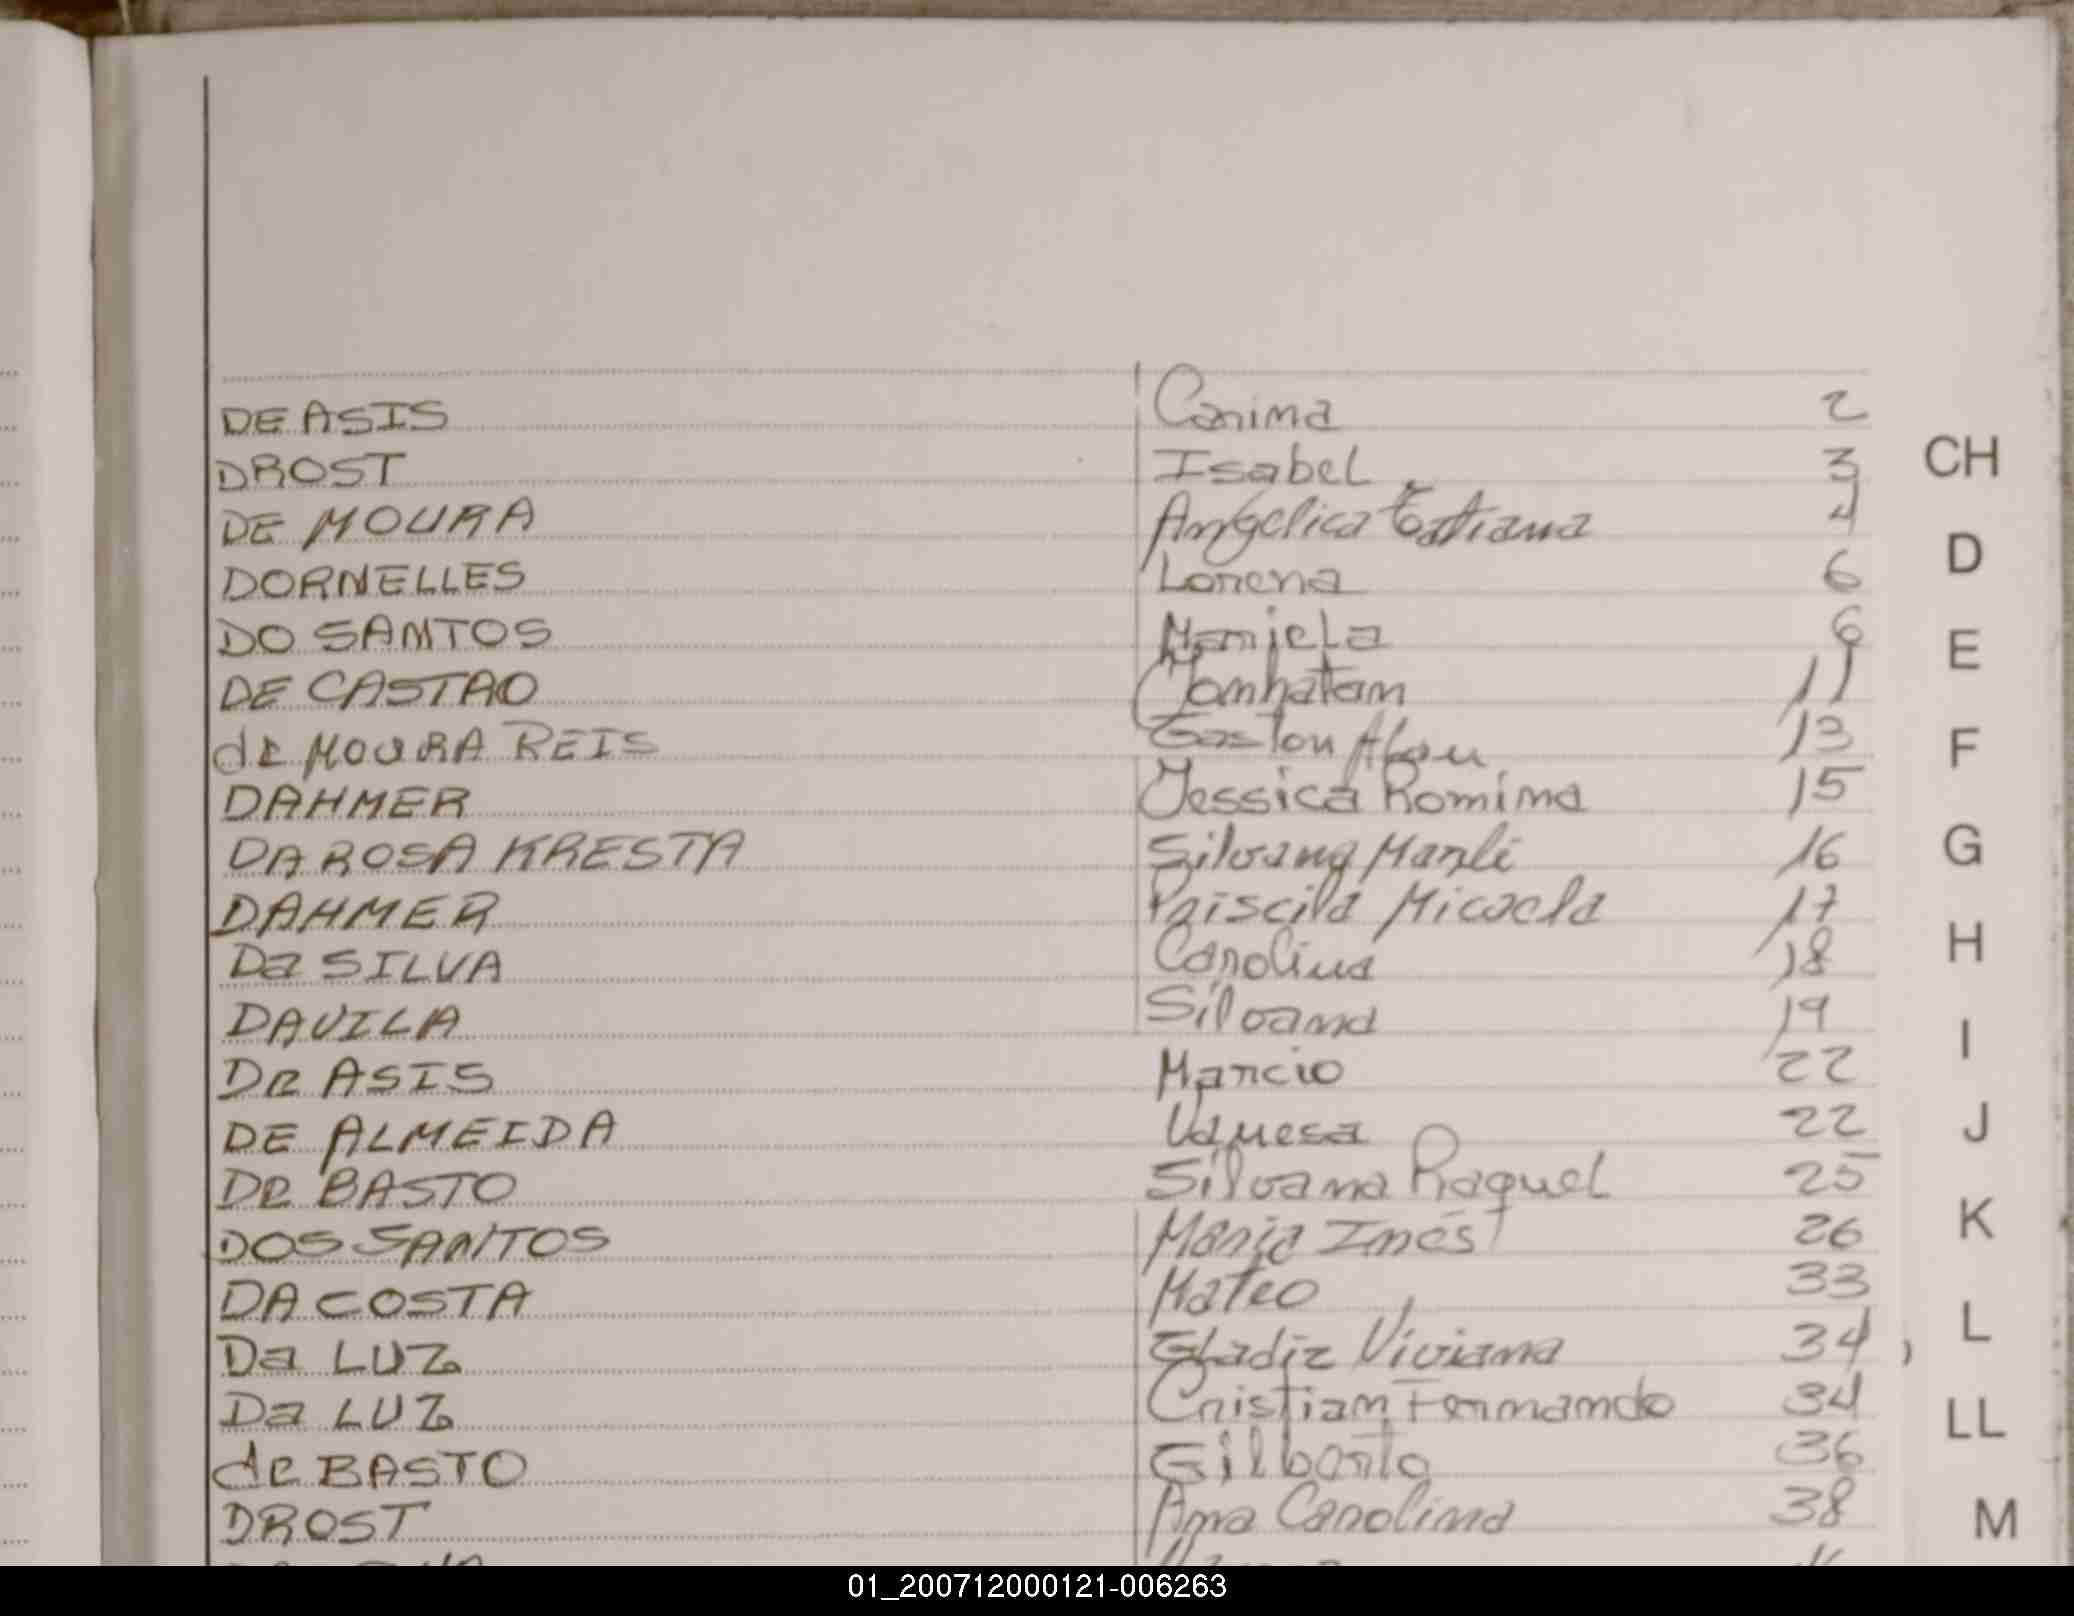 DE ASIS Carina 2
DROST Isabel 3
DE MOURA Angelica Tatiana 4
DORNELLES Lorena 6
DO SANTOS Mariela 6
DE CASTAO Jonhatan 11
de MOURA REIS Gaston Alan 13
DAHMER Jessica Romina 15
DA ROSA KRESTA Silvana Marli 16
DAHMER Priscila Micaela 17
Da SILVA Carolina 18
DAVILA Silvana 19
De ASIS Marcio 22
DE ALMEIDA Vanesa 22
De BASTO Silvana Raquel 25
DOS SANTOS Maria Inés 26
DA COSTA Mateo 33
Da LUZ Gladiz Viviana 34
Da LUZ Cristian Fernando 34
de BASTO Gilberto 36
DROST Ana Carolina 38
CH
D
E
F
G
H
I
J
K
L
LL
M
01_200712000121-006263